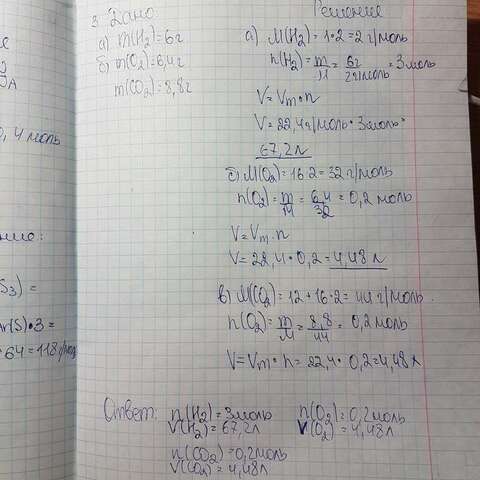 3. Дано
а) m(H₂)=6г
б) m(O₂)=6,4г
m(CO₂)=8,8г
Решение
а) M(H₂)=1•2=2г/моль
n(H₂)=m/M=6г/2г/моль=3моль
V=Vm•n
V=22,4л/моль•3моль=
67,2л
б) M(O₂)=16•2=32г/моль
n(O₂)=m/M=6,4/32=0,2моль
V=Vm•n
V=22,4•0,2=4,48л
в) M(CO₂)=12+16•2=44г/моль.
n(O₂)=m/M=8,8/44=0,2моль
V=Vm•n=22,4•0,2=4,48л
Ответ: n(H₂)=3моль
V(H₂)=67,2л
n(O₂)=0,2моль
V(O₂)=4,48л
n(CO₂)=0,2моль
V(CO₂)=4,48л
0,4моль
S₃)=
Ar(S)•3=
64=118г/мол